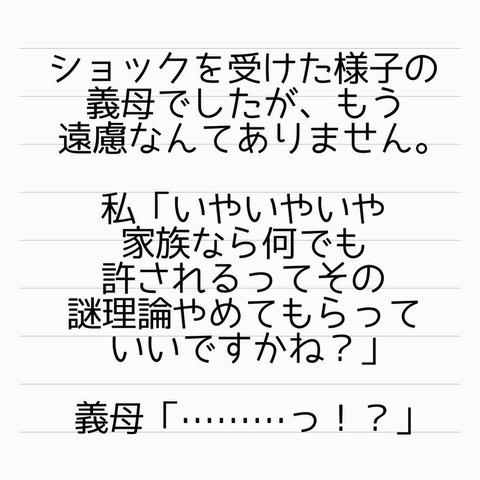 ショックを受けた様子の
義母でしたが、もう
遠慮なんてありません。
私「いやいやいや
家族なら何でも
許されるってその
謎理論やめてもらって
いいですかね？」
義母「………っ！？」